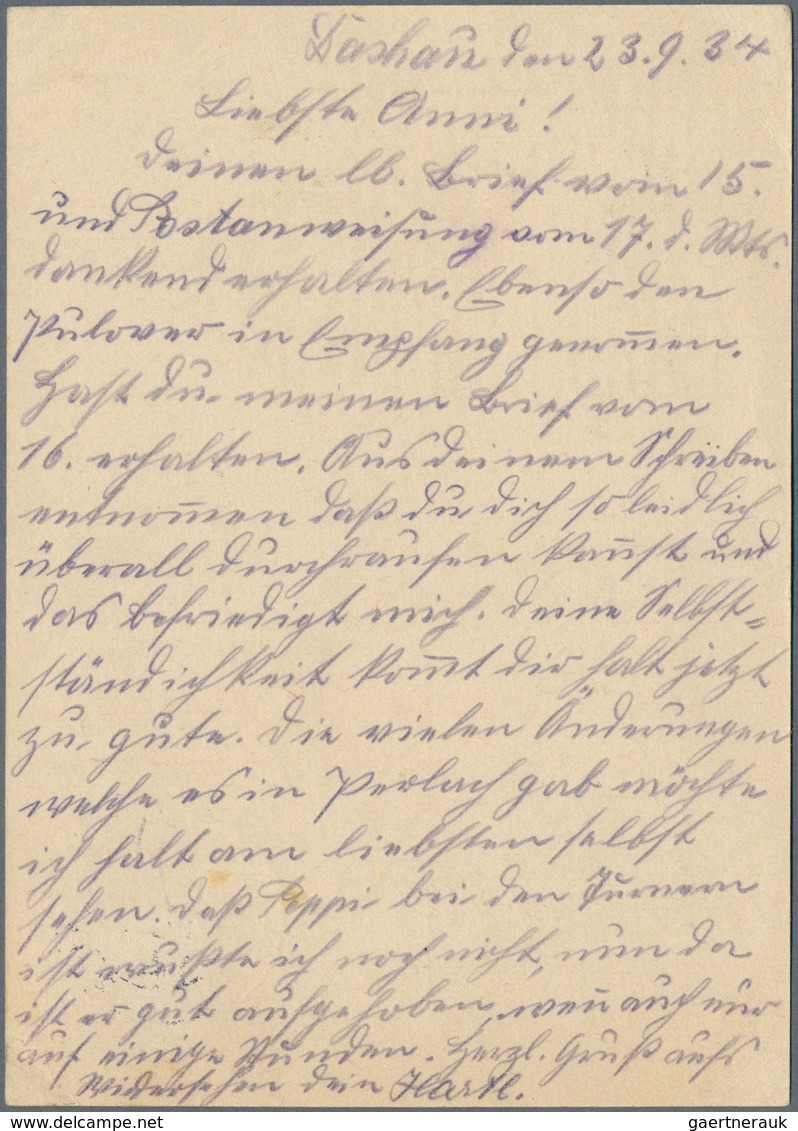 Dachau den 23.9.34
Liebste Anni!
Deinen lb. Brief vom 15.
und Postanweisung vom 17. d. Mts.
dankend erhalten. Ebenso den
Pulover in Empfang genom̅en.
Hast du meinen Brief vom
16. erhalten. Aus deinem Schreiben
entnom̅en daß du dich so leidlich
überall durchraufen kan̅st und
das befriedigt mich. Deine Selbst=
ständichkeit kom̅t dir halt jetzt
zu gute. Die vielen Änderungen
welche es in Perlach gab möchte
ich halt am liebsten selbst
sehen. Daß Peppi bei den Turnern
ist wußte ich noch nicht, nun da
ist er gut aufgehoben, wen̅ auch nur
auf einige Stunden. Herzl. Gruß aufs
Widersehen dein Hartl.
gaertnerauk
delcampe.net